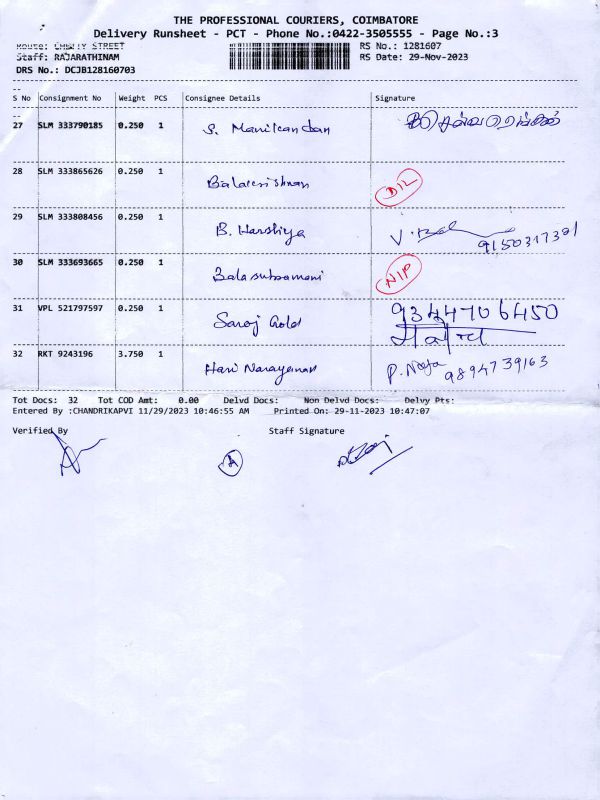 THE PROFESSIONAL COURIERS, COIMBATORE
Delivery Runsheet - PCT - Phone No.:0422-3505555 - Page No.:3
Route: CHETTY STREET
RS No.: 1281607
Staff: RAJARATHINAM
RS Date: 29-Nov-2023
DRS No.: DCJB128160703
S No Consignment No Weight PCS Consignee Details Signature
27 SLM 333790185 0.250 1 S. Manikandan
28 SLM 333865626 0.250 1 Balakrishnan D/L
29 SLM 333808456 0.250 1 B. Harshiya 9150317391
30 SLM 333693665 0.250 1 Balasubramani N/P
31 VPL 521797597 0.250 1 Saroj Gold 9344706450
32 RKT 9243196 3.750 1 Hari Narayanan 9894739163
Tot Docs: 32 Tot COD Amt: 0.00 Delvd Docs: Non Delvd Docs: Delvy Pts:
Entered By :CHANDRIKAPVI 11/29/2023 10:46:55 AM Printed On: 29-11-2023 10:47:07
Verified By Staff Signature
A